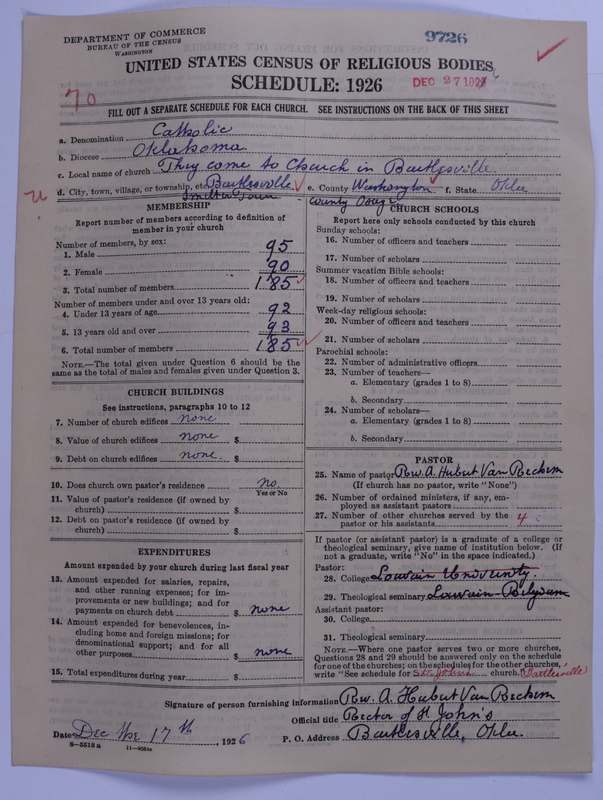 DEPARTMENT OF COMMERCE
BUREAU OF THE CENSUS
WASHINGTON
9726
UNITED STATES CENSUS OF RELIGIOUS BODIES
SCHEDULE: 1926
DEC 27 192
70
FILL OUT A SEPARATE SCHEDULE FOR EACH CHURCH. SEE INSTRUCTIONS ON THE BACK OF THIS SHEET
a. Denomination Catholic
b. Diocese Oklahoma
c. Local name of church They come to Church in Bartlesville
d. City, town, village, or township, etc. Bartlesville e. County Washington f. State Okla
Smelter Town County Osage
MEMBERSHIP
Report number of members according to definition of
member in your church
Number of members, by sex:
1. Male 95
2. Female 90
3. Total number of members 185
Number of members under and over 13 years old:
4. Under 13 years of age 92
5. 13 years old and over 93
6. Total number of members 185
NOTE.—The total given under Question 6 should be the
same as the total of males and females given under Question 3.
CHURCH BUILDINGS
See instructions, paragraphs 10 to 12
7. Number of church edifices none
8. Value of church edifices none $
9. Debt on church edifices none $
10. Does church own pastor's residence No
Yes or No
11. Value of pastor's residence (if owned by
church) $
12. Debt on pastor's residence (if owned by
church) $
EXPENDITURES
Amount expended by your church during last fiscal year
13. Amount expended for salaries, repairs,
and other running expenses; for im-
provements or new buildings; and for
payments on church debt $ none
14. Amount expended for benevolences, in-
cluding home and foreign missions; for
denominational support; and for all
other purposes $ none
15. Total expenditures during year $
CHURCH SCHOOLS
Report here only schools conducted by this church
Sunday schools:
16. Number of officers and teachers
17. Number of scholars
Summer vacation Bible schools:
18. Number of officers and teachers
19. Number of scholars
Week-day religious schools:
20. Number of officers and teachers
21. Number of scholars
Parochial schools:
22. Number of administrative officers
23. Number of teachers—
a. Elementary (grades 1 to 8)
b. Secondary
24. Number of scholars—
a. Elementary (grades 1 to 8)
b. Secondary
PASTOR
25. Name of pastor Rev. A. Hubert Van Reckem
(If church has no pastor, write "None")
26. Number of ordained ministers, if any, em-
ployed as assistant pastors
27. Number of other churches served by the
pastor or his assistants 4
If pastor (or assistant pastor) is a graduate of a college or
theological seminary, give name of institution below. (If
not a graduate, write "No" in the space indicated.)
Pastor:
28. College Louvain University.
29. Theological seminary Louvain - Belgium
Assistant pastor:
30. College
31. Theological seminary
NOTE.—Where one pastor serves two or more churches,
Questions 28 and 29 should be answered only on the schedule
for one of the churches; on the schedules for the other churches,
write "See schedule for St. Johns church. Bartlesville
Signature of person furnishing information Rev. A. Hubert Van Reckem
Official title Rector of St. John's
Date Dec the 17th, 1926 P. O. Address Bartlesville, Okla.
8—5518a 11—9584a